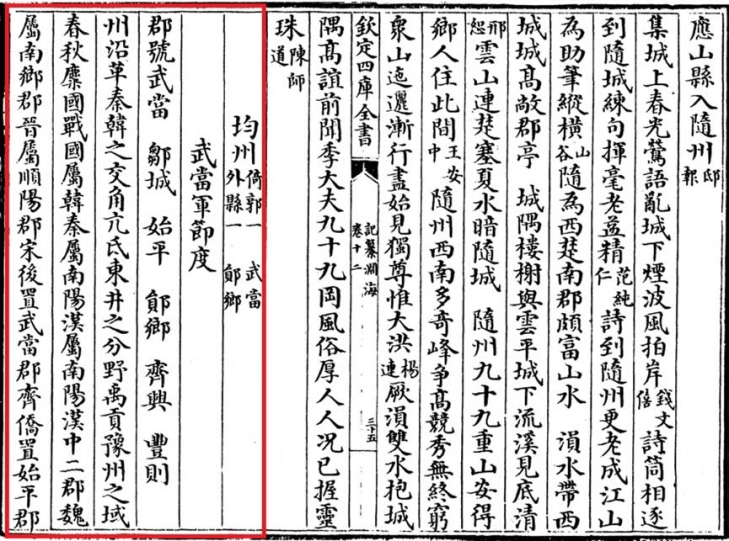 應山縣入隨州邸報
集城上春光鶯語亂城下煙波風拍岸錢文僖詩筒相逐
到隨城練句揮毫老益精范純仁詩到隨州更老成江山
為助筆縱橫山谷隨為西楚南郡頗富山水 溳水帶西
城城高敞郡亭 城隅樓榭與雲平城下流溪見底清
邢恕雲山連楚塞夏水暗隨城 隨州九十九重山安得
鄉人住此間王安中隨州西南多奇峰爭高競秀無終窮
衆山迤邐漸行盡始見獨尊惟大洪楊連厥溳雙水抱城
欽定四庫全書 記纂淵海 卷十二 三十五
隅高誼前聞季大夫九十九岡風俗厚人人况已握靈
珠陳師道
均州倚郭一 武當 外縣一 鄖鄉
武當軍節度
郡號武當 鄒城 始平 鄖鄉 齊興 豐則
州沿革秦韓之交角亢氐東井之分野禹貢豫州之域
春秋麇國戰國屬韓秦屬南陽漢屬南陽漢中二郡魏
屬南鄉郡晉屬順陽郡宋後置武當郡齊僑置始平郡